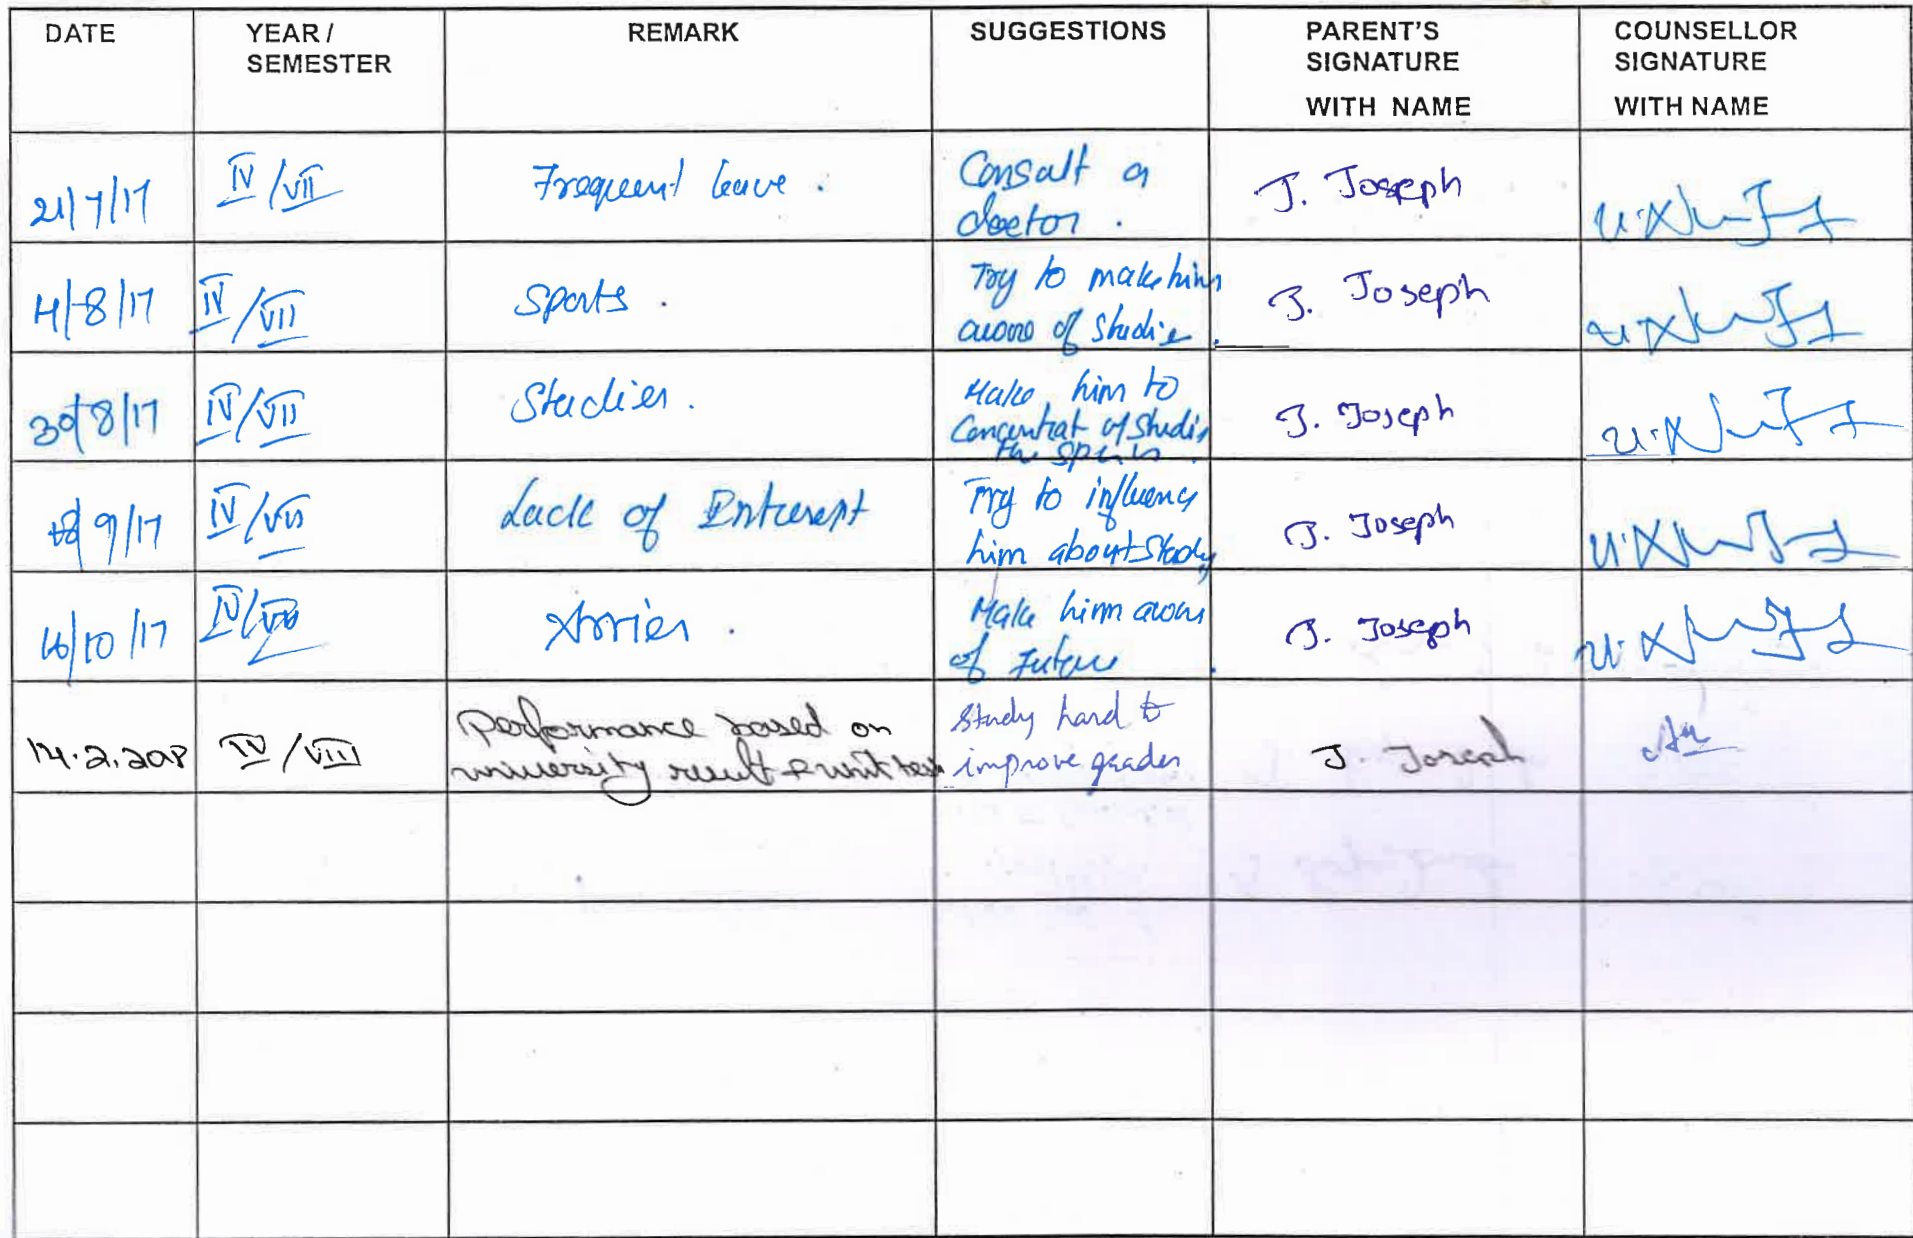 DATE YEAR / SEMESTER REMARK SUGGESTIONS PARENT'S SIGNATURE WITH NAME COUNSELLOR SIGNATURE WITH NAME
21/7/17 IV/VII Frequent leave . Consult a
doctor . J. Joseph
4/8/17 IV/VII Sports . Try to make him
aware of Studies . J. Joseph
30/8/17 IV/VII Studies . Make him to
Concentrat of Studies
the J. Joseph
9/17 IV/VII Lack of Enterest Try to influency
him about Study J. Joseph
16/10/17 IV/VII Arrier . Make him aware
of Future . J. Joseph
14.2.2018 IV/VIII Performance based on
university result & unit test Study hard to
improve grades J. Joseph